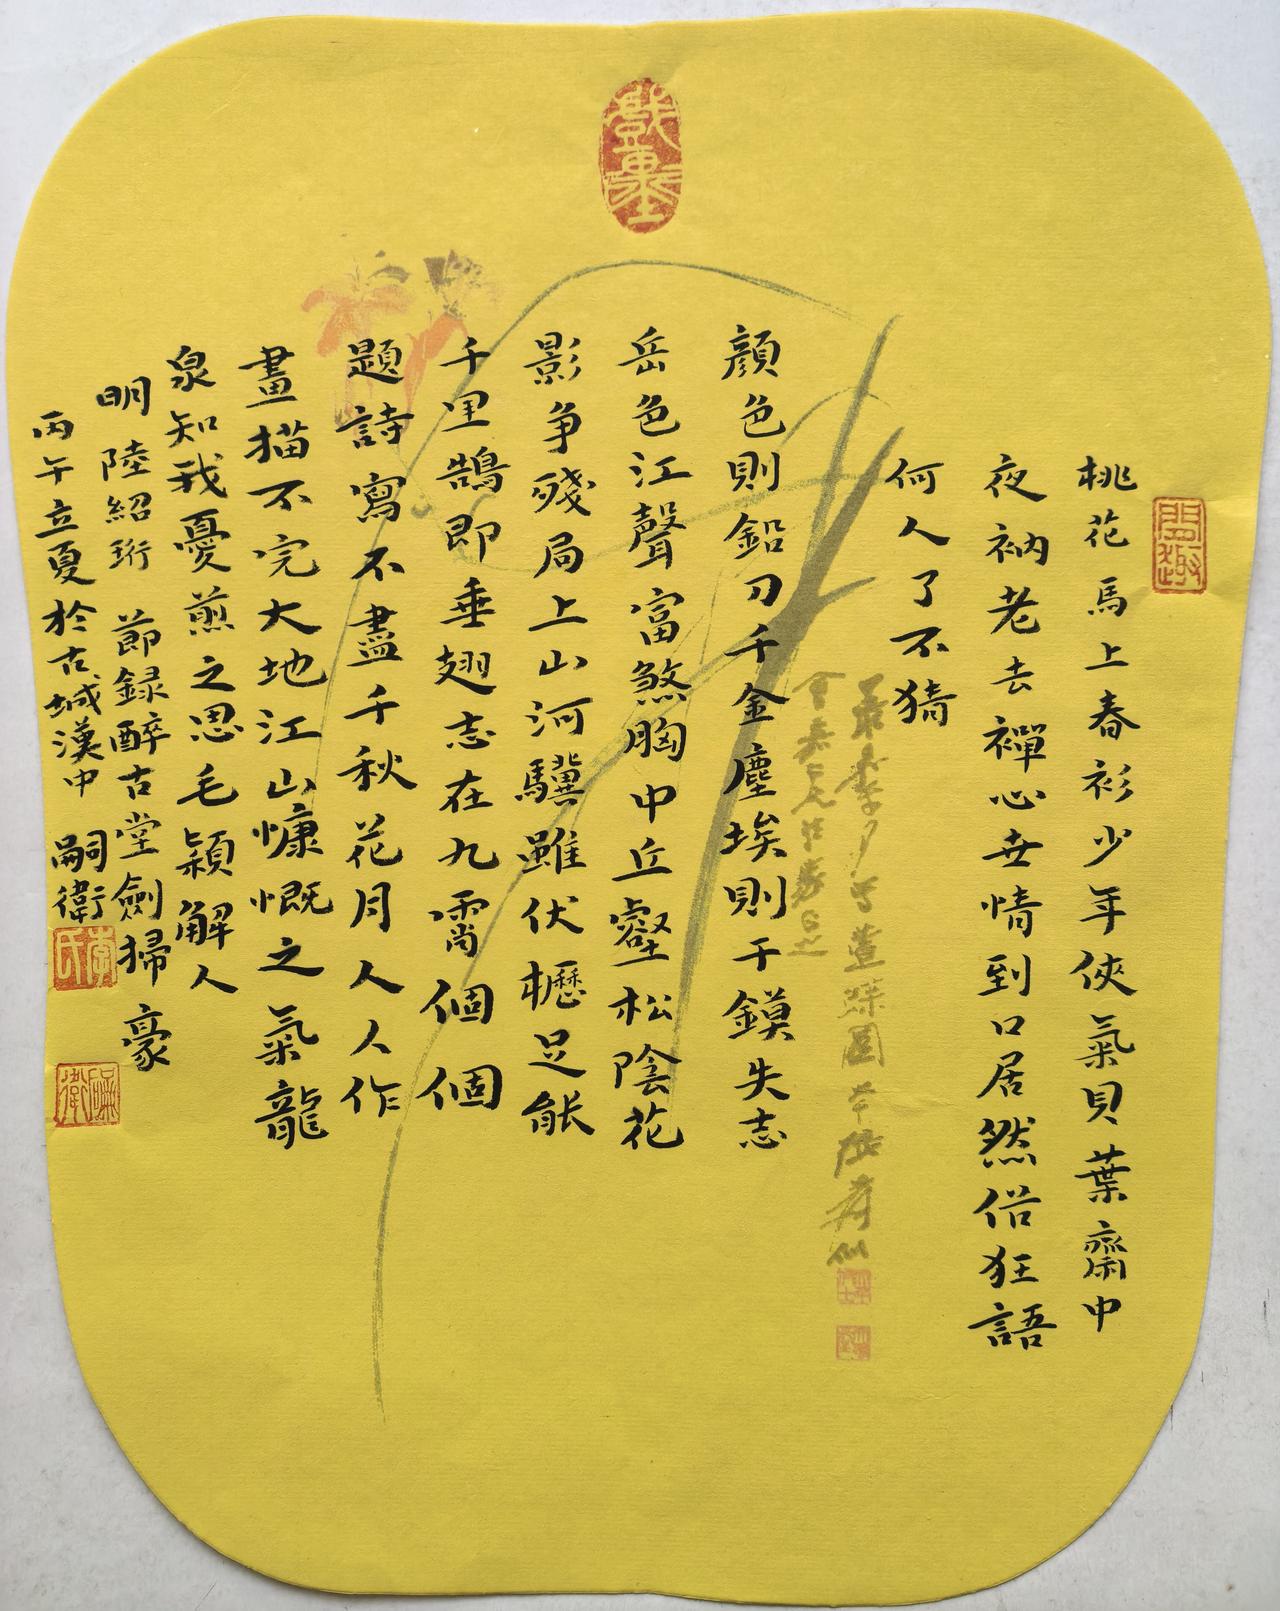 戲墨
閒趣
桃花馬上春衫少年俠氣貝葉齋中
夜衲老去禪心世情到口居然俗狂語
何人了不猜
顏色則鉛刀千金塵埃則干鏌失志
岳色江聲富煞胸中丘壑松陰花
影争殘局上山河驥雖伏櫪足能
千里鵠即垂翅志在九霄個個
題詩寫不盡千秋花月人人作
畫描不完大地江山慷慨之氣龍
泉知我憂煎之思毛穎解人
明陸紹珩 節録醉古堂劍掃 豪
丙午立夏於古城漢中 嗣衛
李氏